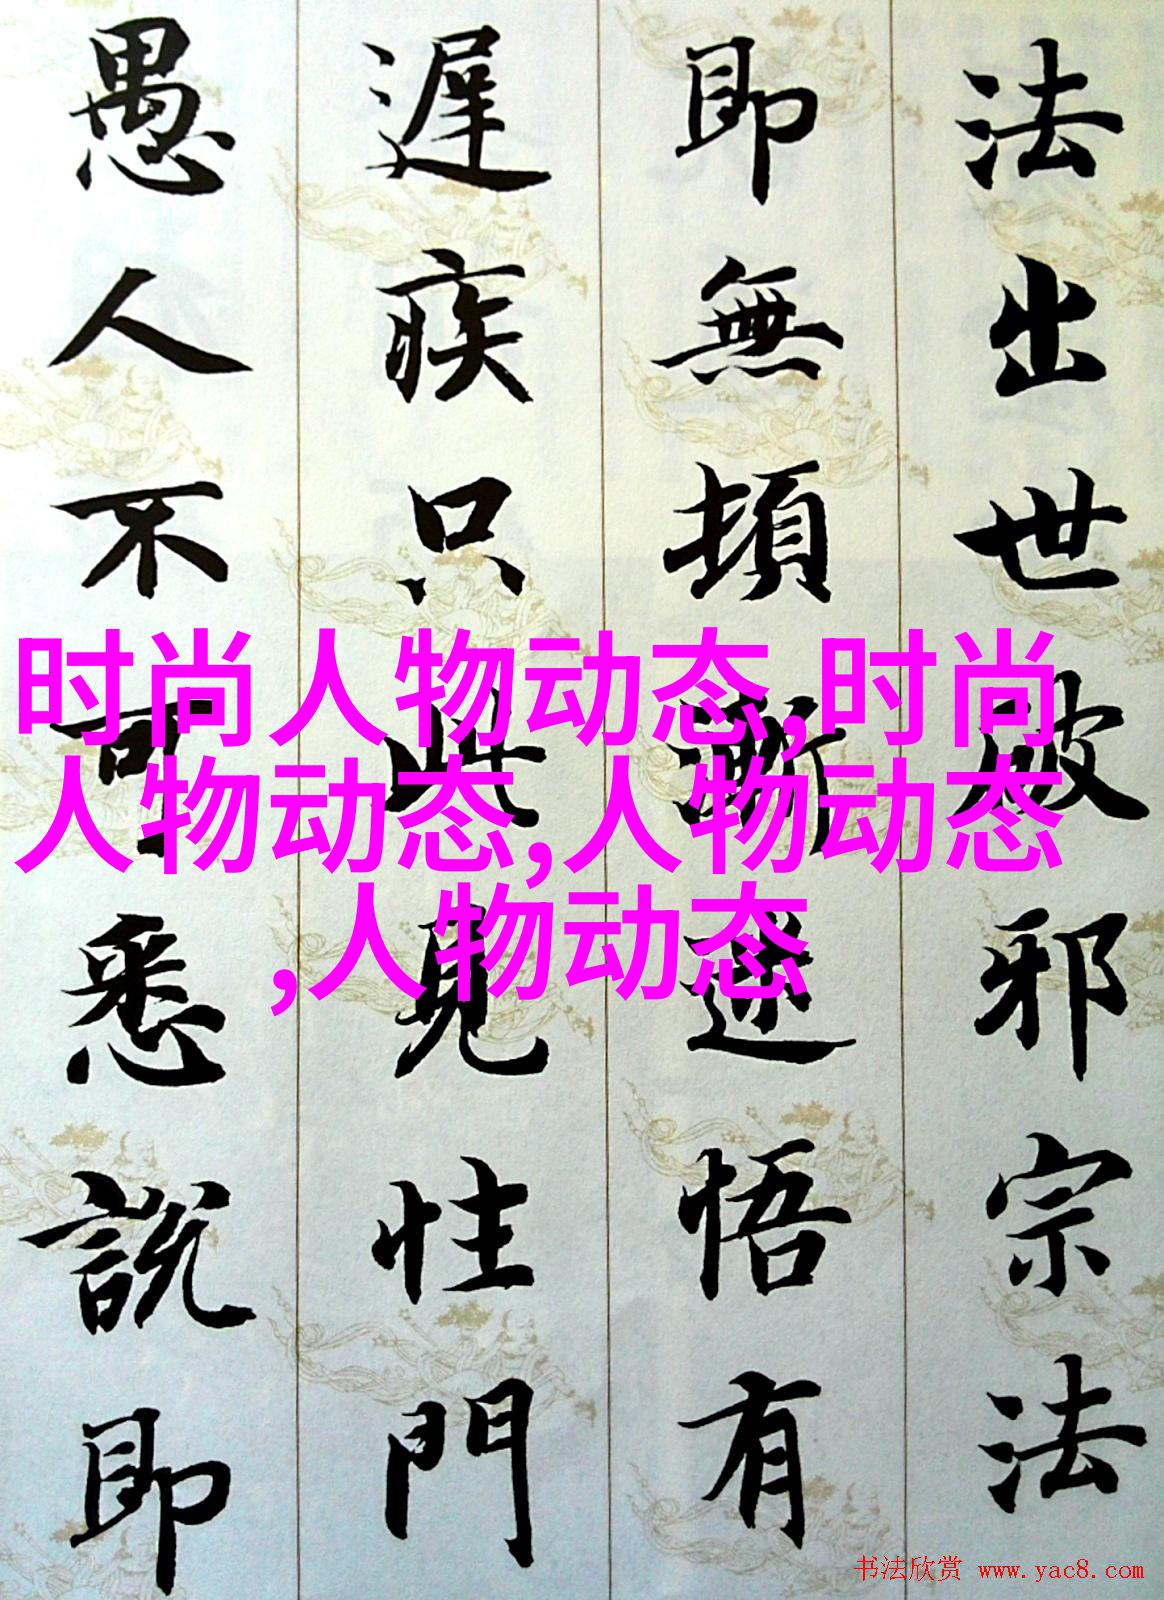 法出世破邪宗法
即無頓漸迷悟有
遲疾只此見性門
愚人不可悉説即
时尚人物动态,时尚
人物动态,人物动态
,人物动态
书法欣赏 www.yac8.com